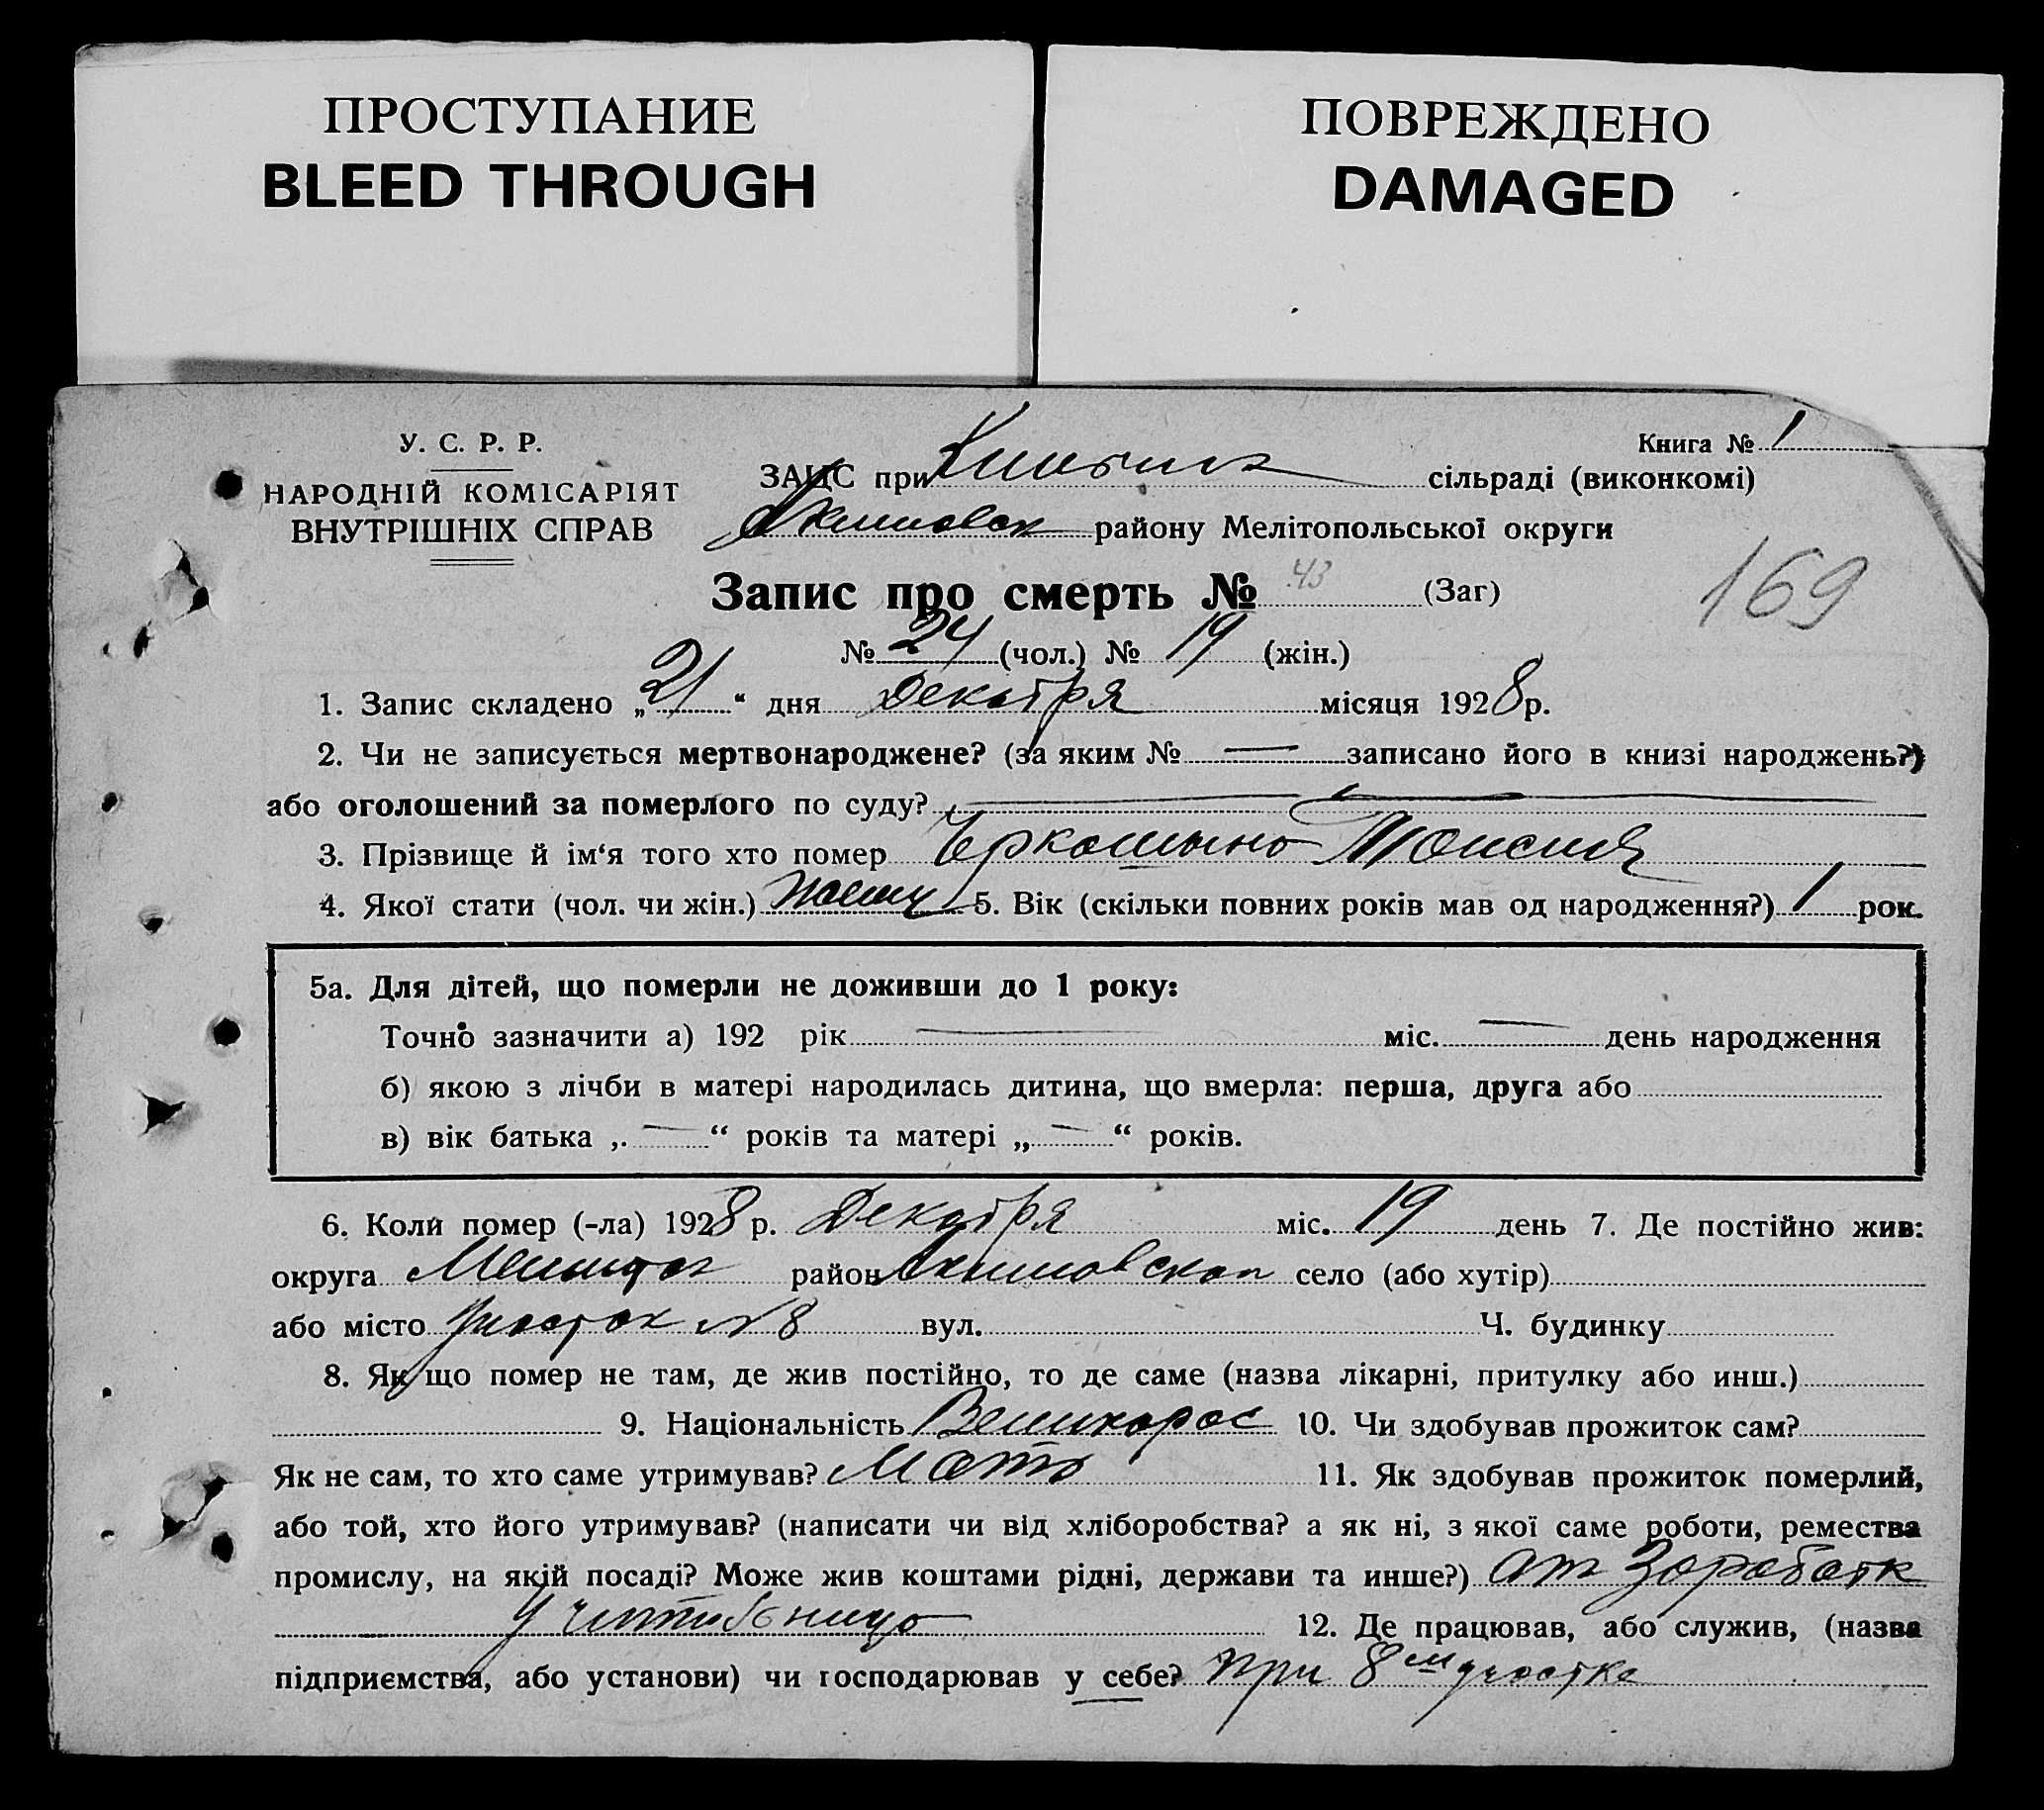 ПРОСТУПАНИЕ
BLEED THROUGH
ПОВРЕЖДЕНО
DAMAGED
У. С. Р. Р.
НАРОДНІЙ КОМІСАРІЯТ
ВНУТРІШНІХ СПРАВ
Книга № 1
ЗАЦС при сільраді (виконкомі)
Акимовск району Мелітопольської округи
169
Запис про смерть № 43 (Заг)
№ 24 (чол.) № 19 (жін.)
1. Запис складено „21“ дня Декабря місяця 1928 р.
2. Чи не записується мертвонароджене? (за яким № — записано його в книзі народжень?)
або оголошений за померлого по суду? —
3. Прізвище й ім‘я того хто помер
4. Якої стати (чол. чи жін.) 5. Вік (скільки повних років мав од народження?) 1 рок.
5а. Для дітей, що померли не доживши до 1 року:
Точно зазначити а) 192 рік — міс. — день народження
б) якою з лічби в матері народилась дитина, що вмерла: перша, друга або
в) вік батька „ — “ років та матері „ — “ років.
6. Коли помер (-ла) 1928 р. Декабря міс. 19 день 7. Де постійно жив:
округа район Акимовскап село (або хутір)
або місто Участок № 8 вул. Ч. будинку
8. Якщо помер не там, де жив постійно, то де саме (назва лікарні, притулку або инш.)
9. Національність Великорос 10. Чи здобував прожиток сам?
Як не сам, то хто саме утримував? Мать 11. Як здобував прожиток померлий,
або той, хто його утримував? (написати чи від хліборобства? а як ні, з якої саме роботи, ремества
промислу, на якій посаді? Може жив коштами рідні, держави та инше?) от Заработк
12. Де працював, або служив, (назва
підприємства, або установи) чи господарював у себе? при 8м участке